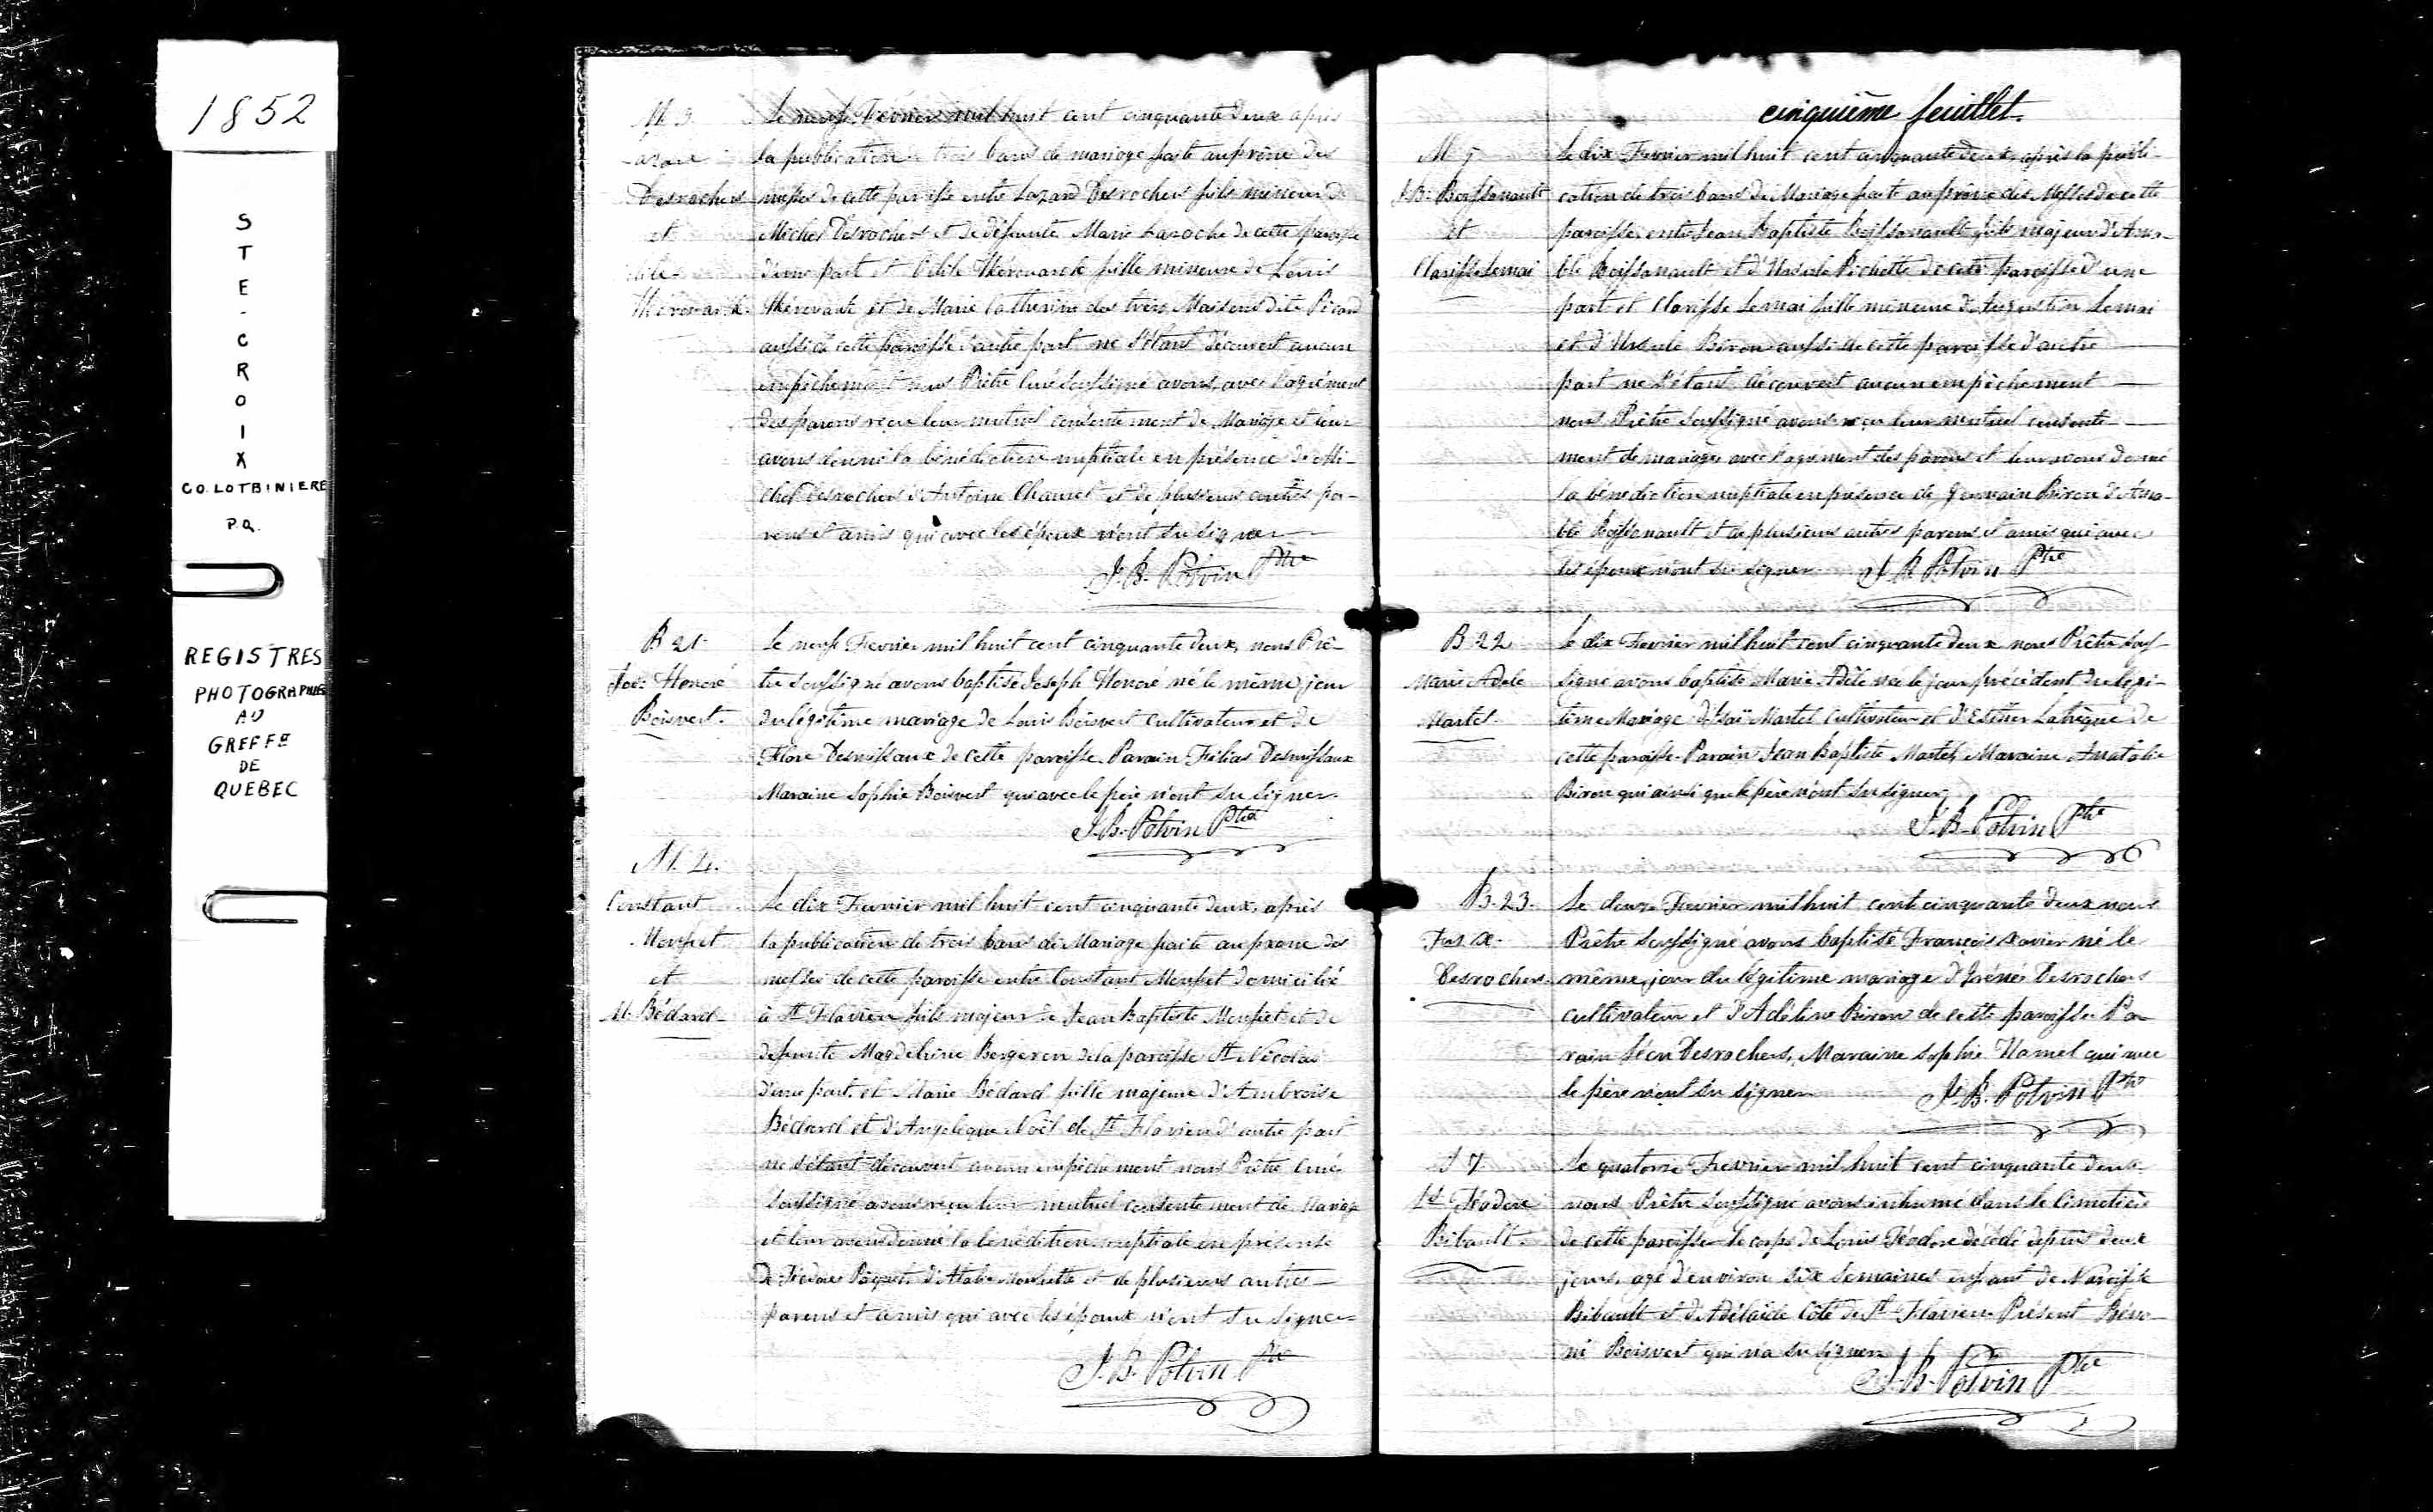 1852
STE-CROIX
CO. LOTBINIERE
P.Q.
REGISTRES
PHOTOGRAPHIES
AU
GREFFE
DE
QUEBEC
M 3.
Desrochers
et
Le neuf Février mil huit cent cinquante deux après
la publication trois bans de mariage faite au prône des
messes de cette paroisse entre Lazare Desrochers fils mineur de
Michel Desrochers et de défunte Marie Laroche de cette paroisse
d'une part et Odile fille mineure de Louis
et de Marie Catherine des trois Maisons dite Picard
aussi de cette paroisse d'autre part ne s'étant découvert aucun
empêchement nous Prêtre Curé soussigné avons, avec l'agrément
des parens reçu leur mutuel consentement de Mariage et leur
avons donné la bénédiction nuptiale en présence de Mi-
chel Desrochers d'Antoine Hamel et de plusieurs autres pa-
rens et amis qui avec les époux n'ont su signer
J. B. Potvin Ptre
B 21
Jos: Honoré
Boisvert.
Le neuf Fevrier mil huit cent cinquante deux, nous Prê-
tre soussigné avons baptisé Joseph Honoré né le même jour
du légitime mariage de Louis Boisvert cultivateur et de
Flore Desruissaux de cette paroisse. Parain Filias Desruissaux
Maraine Sophie Boisvert qui avec le père n'ont su signer.
J. B. Potvin Ptre
M. 4.
Constant
Monfet
et
M. Bédard
Le dix Fevrier mil huit cent cinquante deux, après
la publication de trois bans de Mariage faite au prone des
messes de cette paroisse entre Constant Monfet domicilié
à St Flavien fils majeur de Jean Baptiste Monfet et de
defunte Magdeleine Bergeron de la paroisse St Nicolas
d'une part. et Marie Bédard fille majeure d'Ambroise
Bédard et d'Angelique Noël de St Flavien d'autre part
ne s'étant découvert aucun empêchement nous Prêtre Curé
soussigné avons reçu leur mutuel consentement de Mariage
et leur avons donné la bénédiction nuptiale en présence
de Paquet, d' et de plusieurs autres
parens et amis qui avec les époux n'ont su signer
J. B. Potvin Ptre
cinquième feuillet.
M 5
J. B. Boissonault
et
Clarisse Lemai
Le dix Fevrier mil huit cent cinquante deux, après la publi-
cation de trois bans de Mariage faite au prône des Messes de cette
paroisse entre Jean Baptiste Boissonault fils majeur d'Ama-
ble Boissonault et d'Ursule Pichette de cette paroisse d'une
part et Clarisse Lemai fille mineure d'Augustin Lemai
et d'Ursule Biron aussi de cette paroisse d'autre
part ne s'étant découvert aucun empêchement
nous Prêtre soussigné avons reçu leur mutuel consente-
ment de mariage avec l'agrément des parens et leur avons donné
la bénédiction nuptiale en présence de Germain Biron d'Ama-
ble Boissonault et de plusieurs autres parens et amis qui avec
les époux n'ont su signer J. B. Potvin Ptre
B 22
Marie Adele
Martel
Le dix Fevrier mil huit cent cinquante deux nous Prêtre sous-
signé avons baptisé Marie Adèle née le jour précédent du légi-
time Mariage d'Isaï Martel cultivateur et d'Esther de
cette paroisse. Parain Jean Baptiste Martel, Maraine Anatolie
Biron qui ainsi que le père n'ont su signer.
J. B. Potvin Ptre
B. 23.
Frs X.
Desrochers
Le douze Fevrier mil huit cent cinquante deux nous
Prêtre soussigné avons baptisé François Xavier né le
même jour du légitime mariage d'Irénée Desrochers
cultivateur et d'Adéline Biron de cette paroisse. Pa-
rain Léon Desrochers, Maraine Sophie Hamel qui avec
le père n'ont su signer J. B. Potvin Ptre
S 7.
Ls Féodore
Bibault
Le quatorze Fevrier mil huit cent cinquante deux
nous Prêtre soussigné avons inhumé dans le Cimetière
de cette paroisse le corps de Louis Féodore décédé depuis deux
jours, agé d'environ six semaines enfant de Narcisse
Bibault et d'Adélaïde Côté de St Flavien. Présent Béno-
ni Boisvert qui n'a su signer
J. B. Potvin Ptre